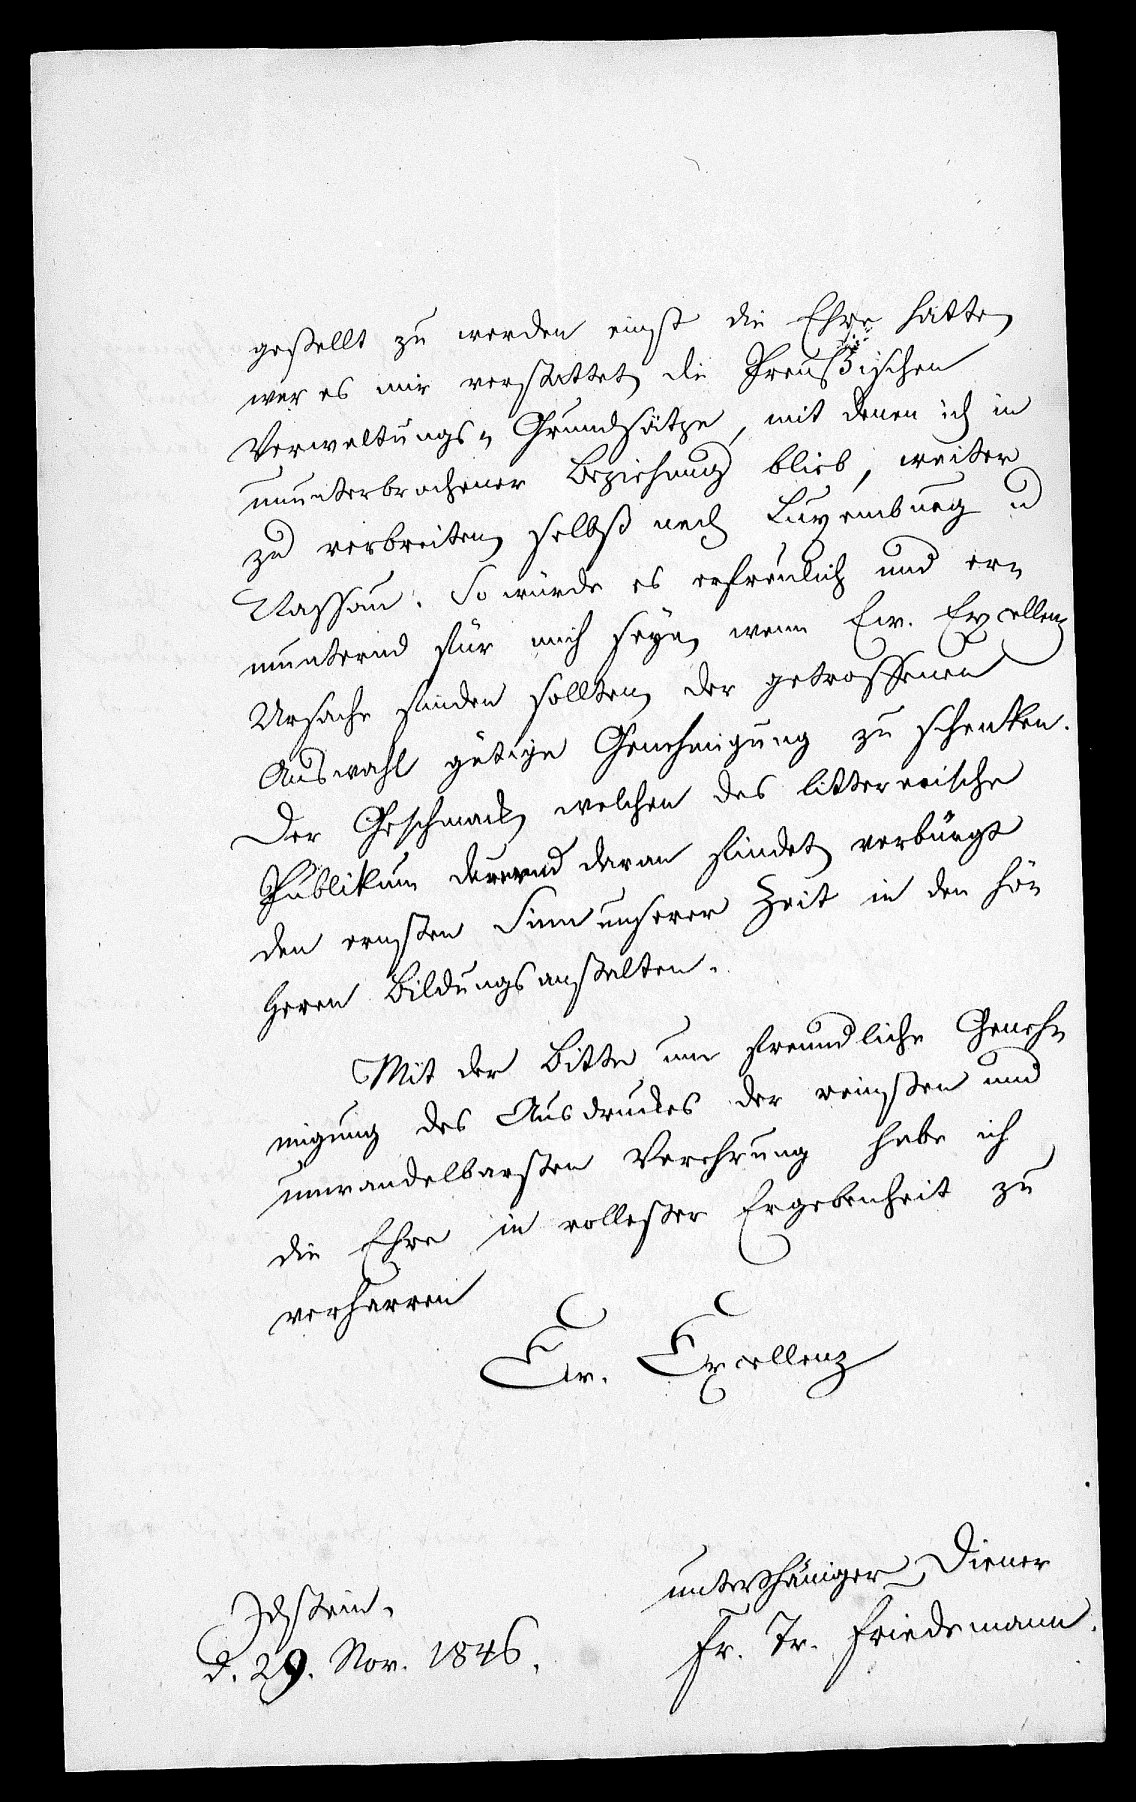 gestellt zu werden einst die Ehre hatte,
war es mir verstattet, die Preußischen
Verwaltungs-Grundsätze, mit denen ich in
ununterbrochener Beziehung blieb, weiter
zu verbreiten, selbst nach Luxemburg u
Nassau. So würde es erfreulich und er-
munternd für mich seyn, wenn Ew. Excellenz
Ursache finden sollten, der getroffenen
Auswahl gütige Genehmigung zu schenken.
Der Geschmack, welchen das litterarische
Publikum dauernd daran findet, verbürgt
den ernsten Sinn unserer Zeit in den hö-
heren Bildungsanstalten.
Mit der Bitte um freundliche Geneh-
migung des Ausdruckes der reinsten und
unwandelbarsten Verehrung habe ich
die Ehre in vollester Ergebenheit zu
verharren
Ew. Excellenz
unterthäniger Diener
Fr. Tr. Friedemann.
Idstein,
d. 29. Nov. 1846.